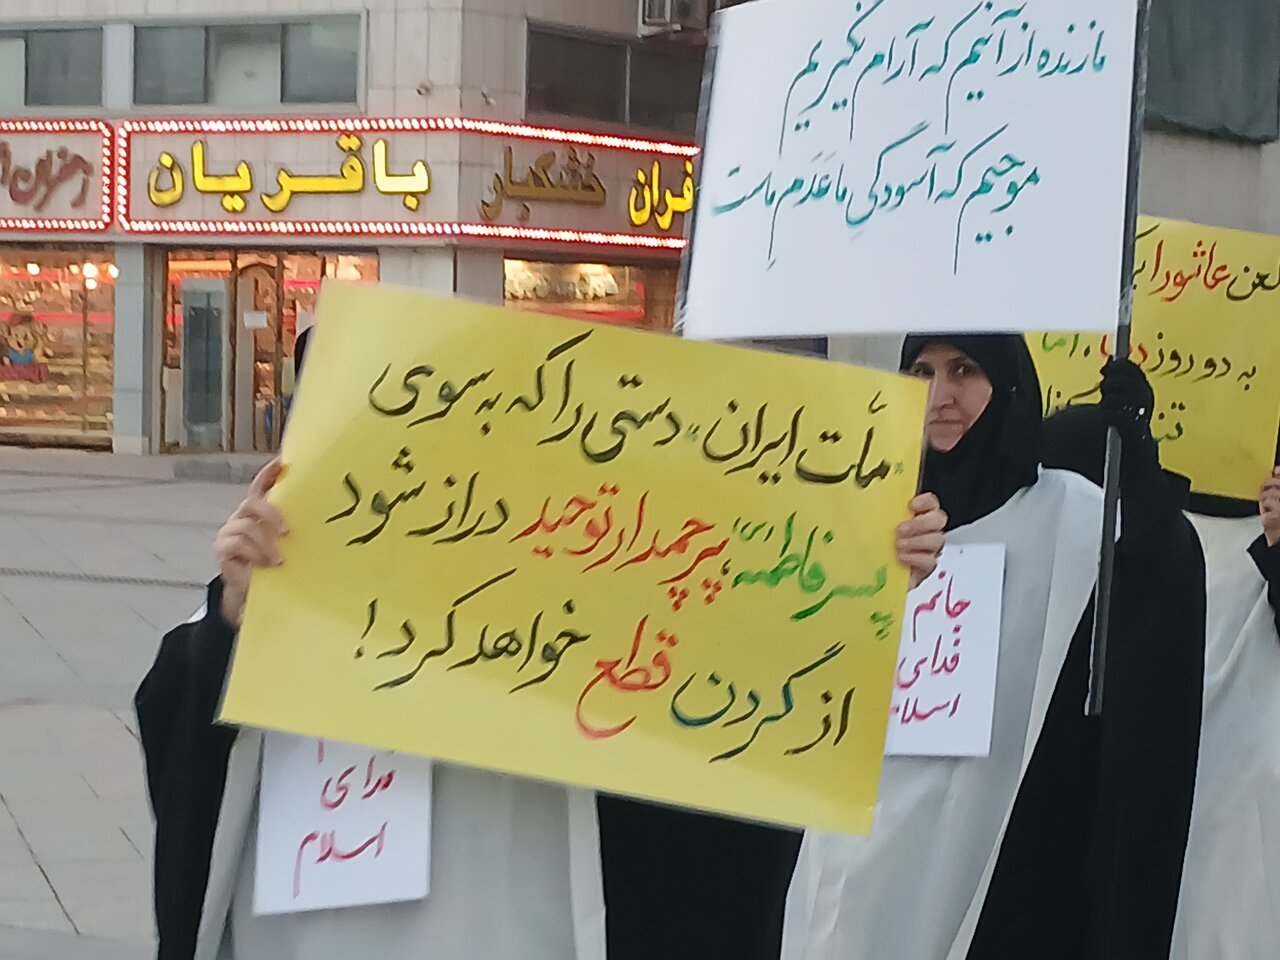 زعفران
باقریان
خشکبار
فران
ما زنده از آنیم که آرام نگیریم
موجیم که آسودگی ما عَدَم ماست
«ملّت ایران» دستی را که به سوی
پسر فاطمه(س)، پرچمدار توحید دراز شود
از گردن قطع خواهد کرد!
عاشورا
به دو روز دنیا، اما
جانم
فدای
اسلام
فدای
اسلام